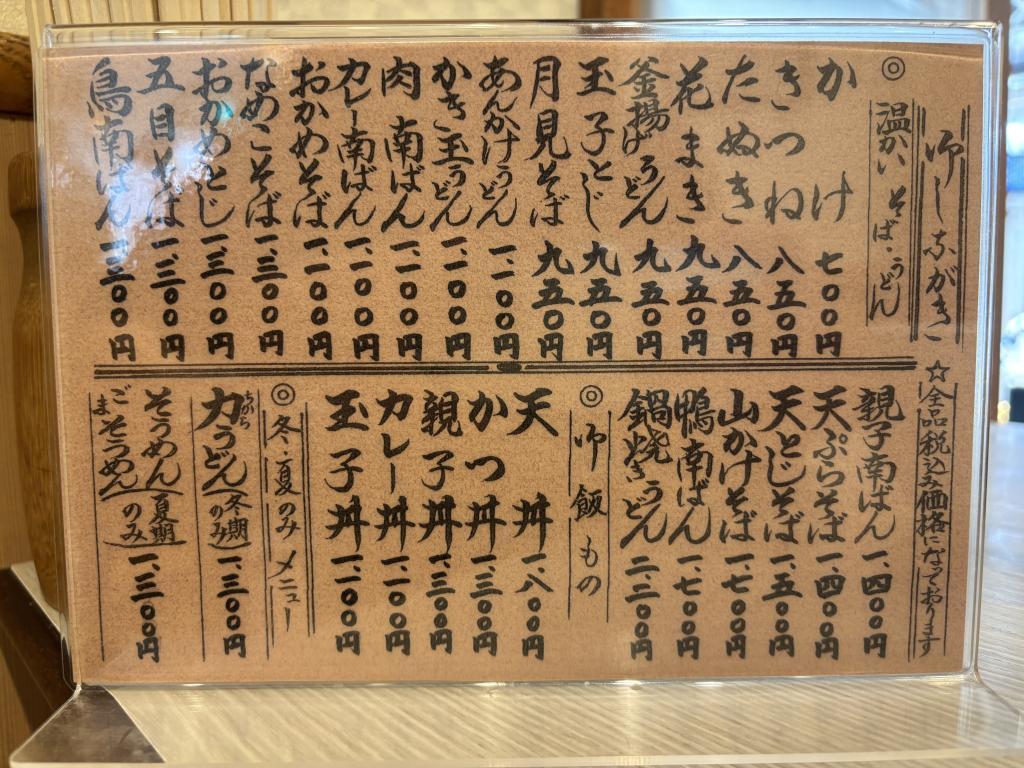 御しながき
◎温かい そば・うどん
かけ 七〇〇円
きつね 八五〇円
たぬき 八五〇円
花まき 九五〇円
釜揚げうどん 九五〇円
玉子とじ 九五〇円
月見そば 九五〇円
あんかけうどん 一、一〇〇円
かき玉うどん 一、一〇〇円
肉南ばん 一、一〇〇円
カレー南ばん 一、一〇〇円
おかめそば 一、一〇〇円
なめこそば 一、三〇〇円
おかめとじ 一、三〇〇円
五目そば 一、三〇〇円
鳥南ばん 一、三〇〇円
☆全品税込み価格になっております
親子南ばん 一、四〇〇円
天ぷらそば 一、四〇〇円
天とじそば 一、五〇〇円
山かけそば 一、七〇〇円
鴨南ばん 一、七〇〇円
鍋焼きうどん 二、二〇〇円
◎御飯もの
天丼 一、八〇〇円
かつ丼 一、三〇〇円
親子丼 一、三〇〇円
カレー丼 一、一〇〇円
玉子丼 一、一〇〇円
◎冬・夏のみメニュー
力うどん(冬期のみ) 一、三〇〇円
ちから
そうめん
ごまそうめん
(夏期のみ) 一、三〇〇円